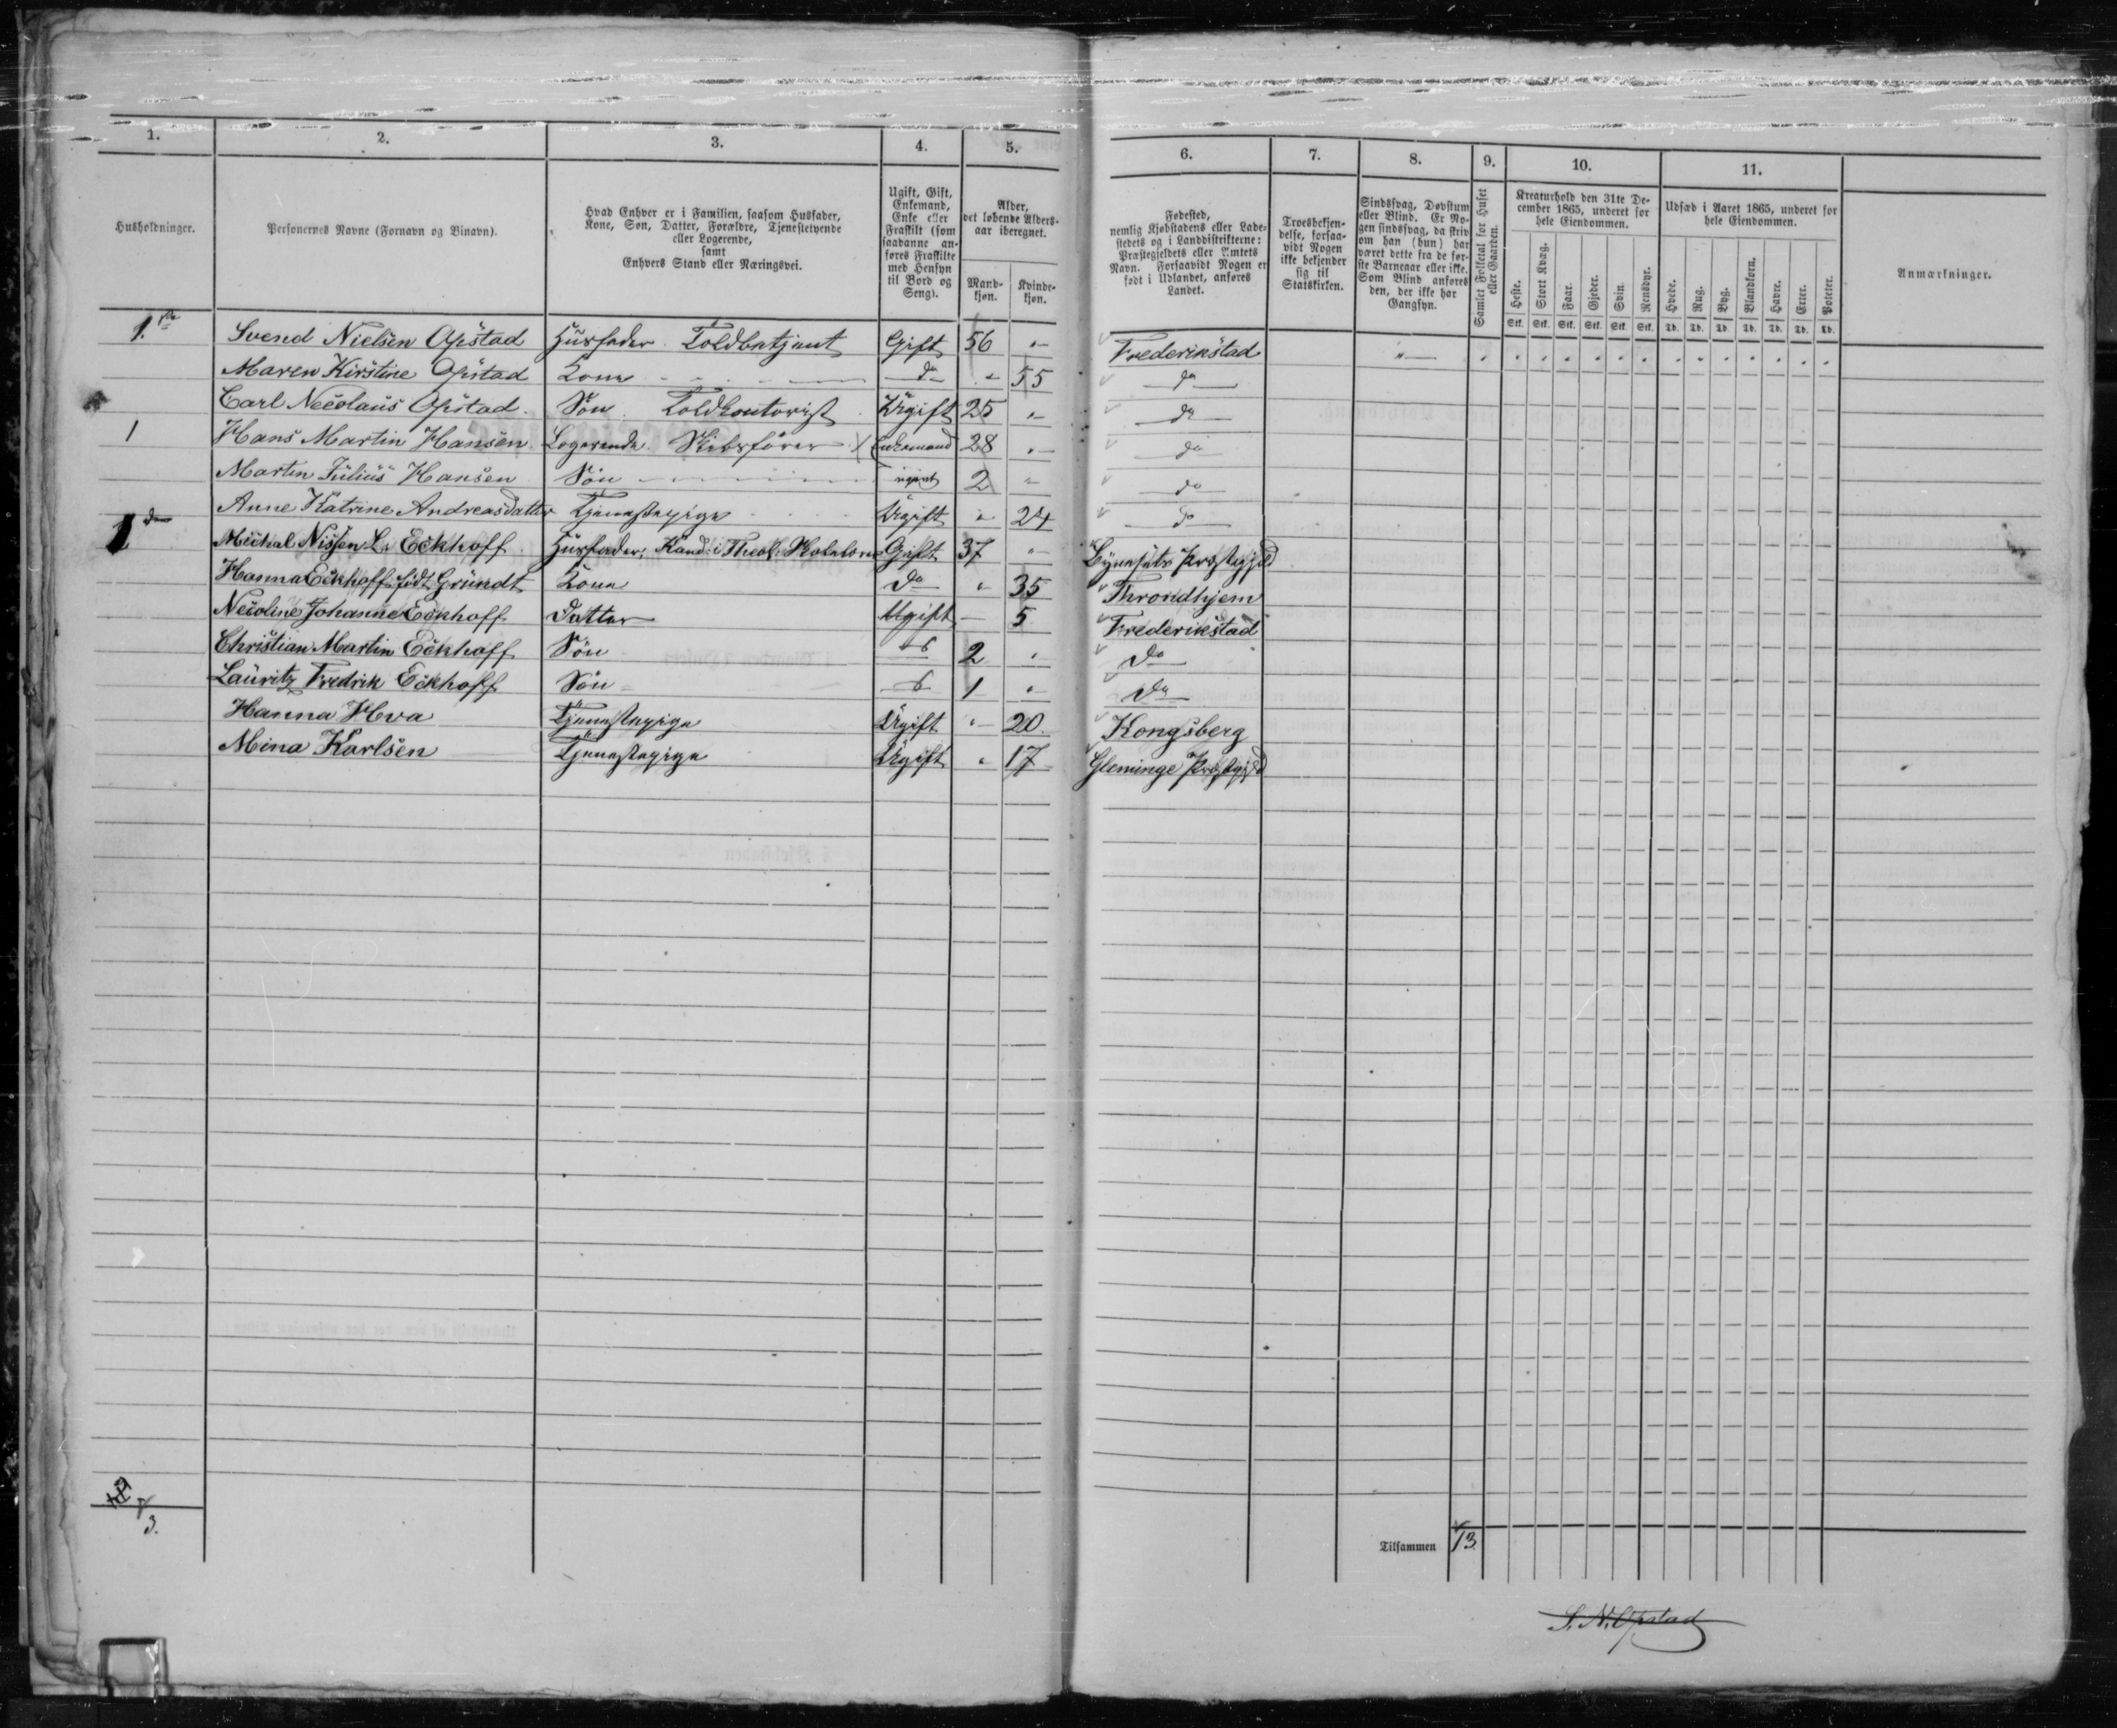 1. 2. 3. 4. 5. 6. 7. 8. 9. 10. 11.
Husholdninger.
Personernes Navne (Fornavn og Binavn).
Hvad Enhver er i Familien, saasom Husfader,
Kone, Søn, Datter, Forældre, Tjenestetyende
eller Logerende,
samt
Enhvers Stand eller Næringsvei.
Ugift, Gift,
Enkemand,
Enke eller
Fraskilt (som
saadanne an-
føres Fraskilte
med Hensyn
til Bord og
Seng).
Alder,
det løbende Alders-
aar iberegnet.
Mand-
kjøn.
Kvinde-
kjøn.
Fødested,
nemlig Kjøbstadens eller Lade-
stedets og i Landdistrikterne:
Præstegjeldets eller Amtets
Navn. Forsaavidt Nogen er
født i Udlandet, anføres
Landet.
Troesbekjen-
delse, forsaa-
vidt Nogen
ikke bekjender
sig til
Statskirken.
Sindssvag, Døvstum
eller Blind. Er No-
gen sindssvag, da skriv
om han (hun) har
været dette fra de før-
ste Barneaar eller ikke.
Som Blind anføres
den, der ikke har
Gangsyn.
Samlet Folketal for Huset
eller Gaarden.
Kreaturhold den 31te De-
cember 1865, underet for
hele Eiendommen.
Heste. Stort Kvæg. Faar. Gjeder. Svin. Rensdyr.
Stk. Stk. Stk. Stk. Stk. Stk.
Udsæd i Aaret 1865, underet for
hele Eiendommen.
Hvede. Rug. Byg. Blandkorn. Havre. Erter. Poteter.
Td. Td. Td. Td. Td. Td. Td.
Anmærkninger.
1. Svend Nielsen Opstad Husfader. Toldbetjent Gift 56 " Frederikstad "
Maren Kirstine Opstad Kone do " 55 do
Carl Necolaus Opstad. Søn. Toldkontorist Ugift 25 " do
1 Hans Martin Hansen Logerende. Skibsfører Enkemand 28 " do
Martin Julius Hansen Søn ugift 2 " do
Anne Katrine Andreasdatter Tjenestepige Ugift " 24 do
Michal Nissen L. Eckhoff Husfader, Kand: i Theol. Gift 37 " Bynesets Præstegjeld
Hanna Eckhoff født Grundt Kone do " 35 Throndhjem
Necoline Johanne Eckhoff Datter Ugift — 5 Frederikstad
Christian Martin Eckhoff Søn 2 " do
Lauritz Fredrik Eckhoff Søn 1 " do
Hanna Hva Tjenestepige Ugift " 20. Kongsberg
Mina Karlsen Tjenestepige Ugift " 17 Gleminge Præstegjeld
3.
Tilsammen 13
S. N. Opstad